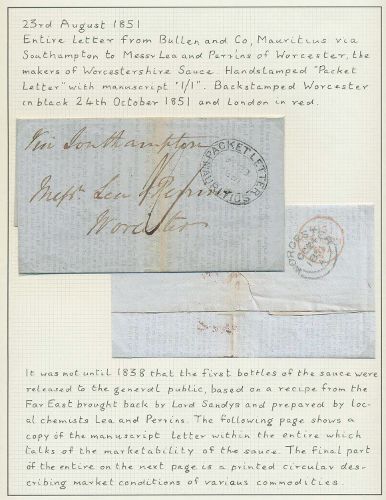 23rd August 1851
Entire Letter from Bullen and Co, Mauritius via
Southampton to Messrs Lea and Perrins of Worcester, the
makers of Worcestershire Sauce. Handstamped "Packet
Letter" with manuscript "1/1". Backstamped Worcester
in black 24th October 1851 and London in red.
Via Southampton
PACKET LETTER
MAURITIUS
Messrs Lea & Perrins
Worcester
WORCESTER
It was not until 1838 that the first bottles of the sauce were
released to the general public, based on a recipe from the
Far East brought back by Lord Sandys and prepared by lo-
cal chemists Lea and Perrins. The following page shows a
copy of the manuscript letter within the entire which
talks of the marketability of the sauce. The final part
of the entire on the next page is a printed circular des-
cribing market conditions of various commodities.